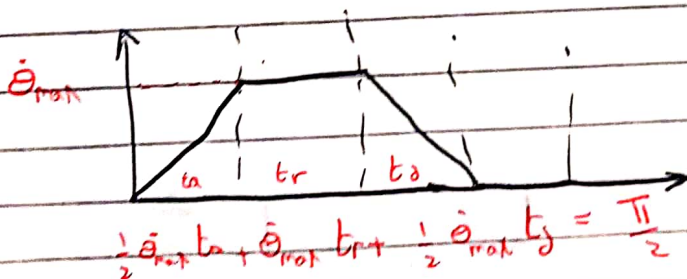 θ̇max
ta tr td
½ θ̇max ta + θ̇max tr + ½ θ̇max td = π/2